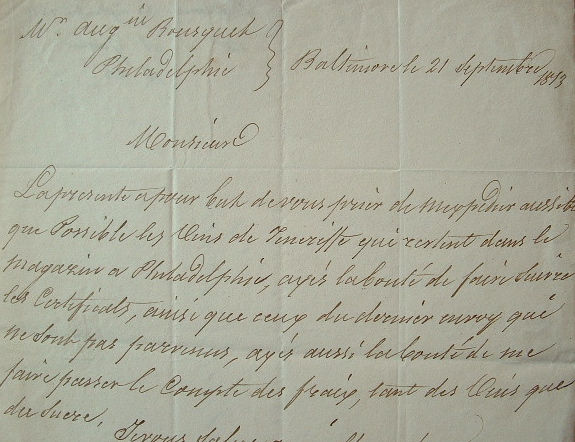 Mr. Aug.in Bousquet
Philadelphie
Baltimore le 21 Septembre 1813
Monsieur
La presente a pour but de vous prier de m'expedir aussitot
que Possible les Vins de Teneriffe qui restent dans le
magazin a Philadelphie, ayés la bonté de faire suivre
les Certificats, ainsi que ceux du dernier envoy qui
ne sont pas parvenus, ayés aussi la bonté de me
faire passer le Compte des fraix, tant des Vins que
du Sucre.
Je vous Salue